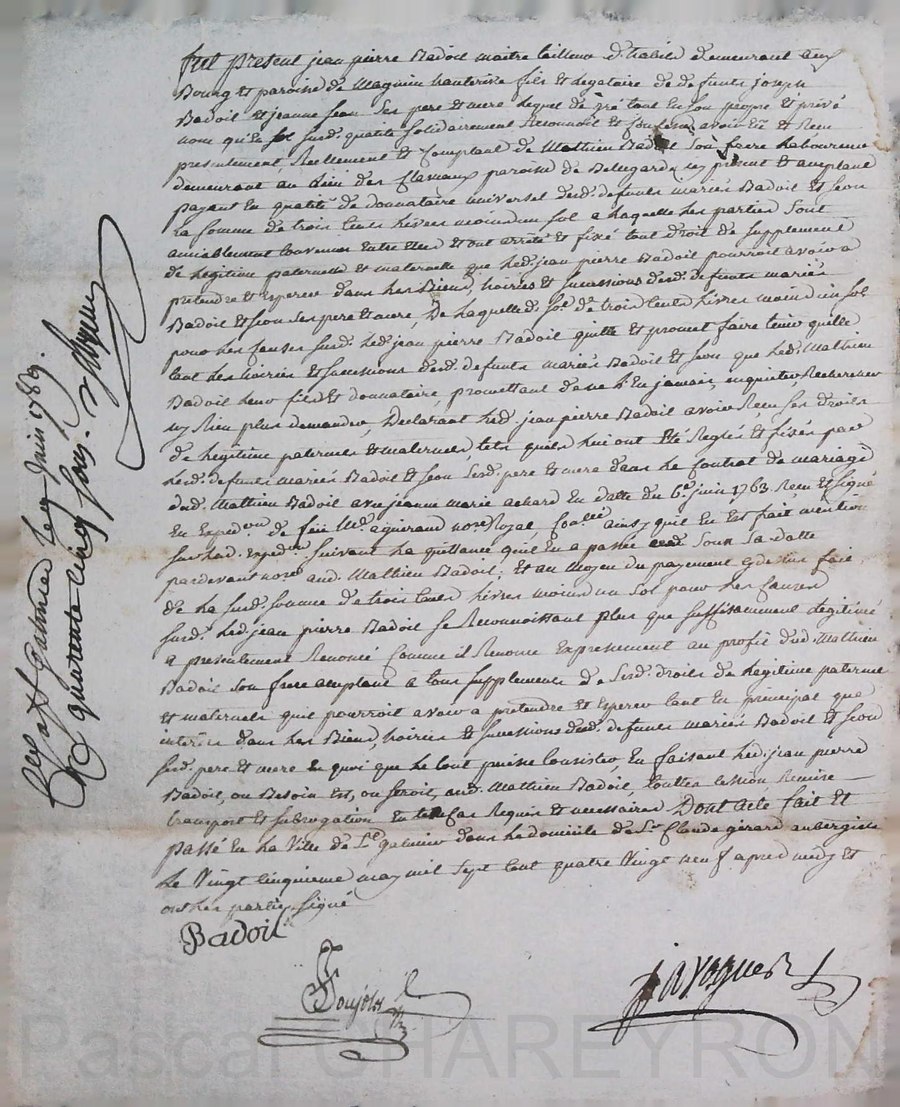 fut present jean pierre Badoil maitre tailleur d'habit demeurant aux
Bourg et paroisse de Magnieu hauterive fils et legataire de defunts joseph
Badoil et jeanne feon ses pere et mere lequel de gré tant en son propre et privé
nom qu'en sus.de qualité solidairement Reconnoit et Confesse avoir Eü et Recu
presentement, Reellement et Comptant de Mathieu Badoil Son frere laboureur
demeurant au lieu des Clavaux paroisse de Bellegarde icy present et acceptant
payant En qualité de donnataire universel desd. defunts mariés Badoil et feon
La somme de trois Cents livres moins un sol a laquelle les parties Sont
amiablement Convenues Entre elles et ont arrêté et fixé tout droit de supplement
de legitime paternelle et maternelle que led. jean pierre Badoil pourroit avoir a
pretendre et Esperer dans les Biens, hoiries et successions desd. defunts mariés
Badoil et feon ses pere et mere, De laquelle de. se. de trois Cents livres moins un sol
pour les Causes susd. led. jean pierre Badoil quitte et promet faire tenir quitte
tant les hoiries et successions desd. defunts mariés Badoil et feon que led. Mathieu
Badoil leur fils et donnataire, promettant de ne l'En jamais inquieter, Rechercher
ny Rien plus demander, Declarant led. jean pierre Badoil avoir Recu ses droits
de legitime paternels et maternels tels quels lui ont Eté Reglés et fixés par
lesd. defunts mariés Badoil et feon sesd. pere et mere dans le Contrat de mariage
dud. Mathieu Badoil avec jeanne marie achard En datte du 6e. juin 1763 Recu et signé
En Expedon. de feu Me. aguiraud nore. Royal ainsy qu'il En est fait mention
sur lad. Expedon. suivant la quittance qu'il En a passée Sous Sa datte
pardevant nore. aud. Mathieu Badoil, Et au Moyen du payement cy dessus fait
de la susd. somme de trois Cents livres moins un sol pour les Causes
susd. led. jean pierre Badoil Se Reconnoissant plus que suffisamment legitimé
a presentement Renoncé Comme il Renonce Expressement au profit dud. Mathieu
Badoil Son frere acceptant a tous supplements de sesd. droits de legitime paternels
et maternels qu'il pourroit avoir a pretendre et Esperer tant en principal que
interêts dans les Biens, hoiries et successions desd. defunts mariés Badoil et feon
sesd. pere et mere En quoi que le tout puisse Consister, En faisant led. jean pierre
Badoil, ou Besoin est, ou seroit, aud. Mathieu Badoil, touttes Cession, Remise
transport et subrogation En tel Cas Requis et necessaires Dont acte fait et
passé En la Ville de St. galmier dans le domicile de Sr. Claude gerard aubergiste
Le Vingt Cinquieme may mil Sept Cent quatre Vingt neuf apres midy et
ont les parties signé
Badoil
Ponjola
R a St galmier Le 7 juin 1789.
quarente Cinq sols.
Pascal CHAREYRON